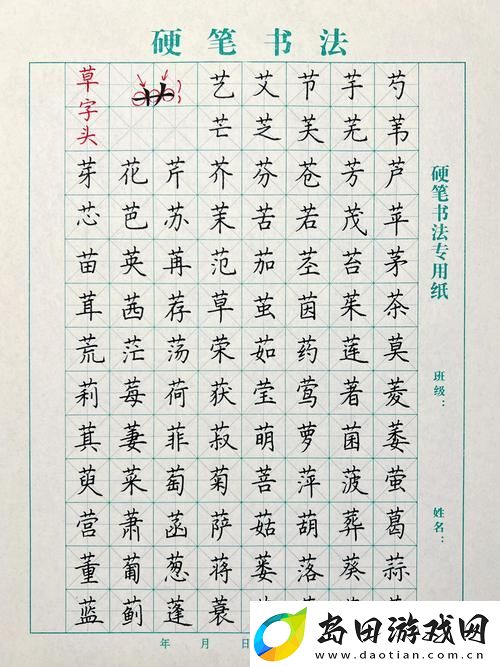 硬笔书法
草字头
艺艾节芋芍
芒芝芙芜苇
芽花芹芥芬苍芳芦
芯芭苏茉苦若茂苹
苗英苒范茄茎苔茅
茸茜荐草茧茵茱茶
荒茫荡荣茹药莲莫
莉莓荷获莹莺著菱
萁萋菲菽萌萝菌萎
萸菜萄菊菩萍菠萤
营萧菡萨菇葫葬葛
董葡葱蒋蒌落葵蒜
蓝蓟蓬蓑
硬笔书法专用纸
班级：
姓名：
年 月 日
岛田游戏网
www.daotian.com.cn